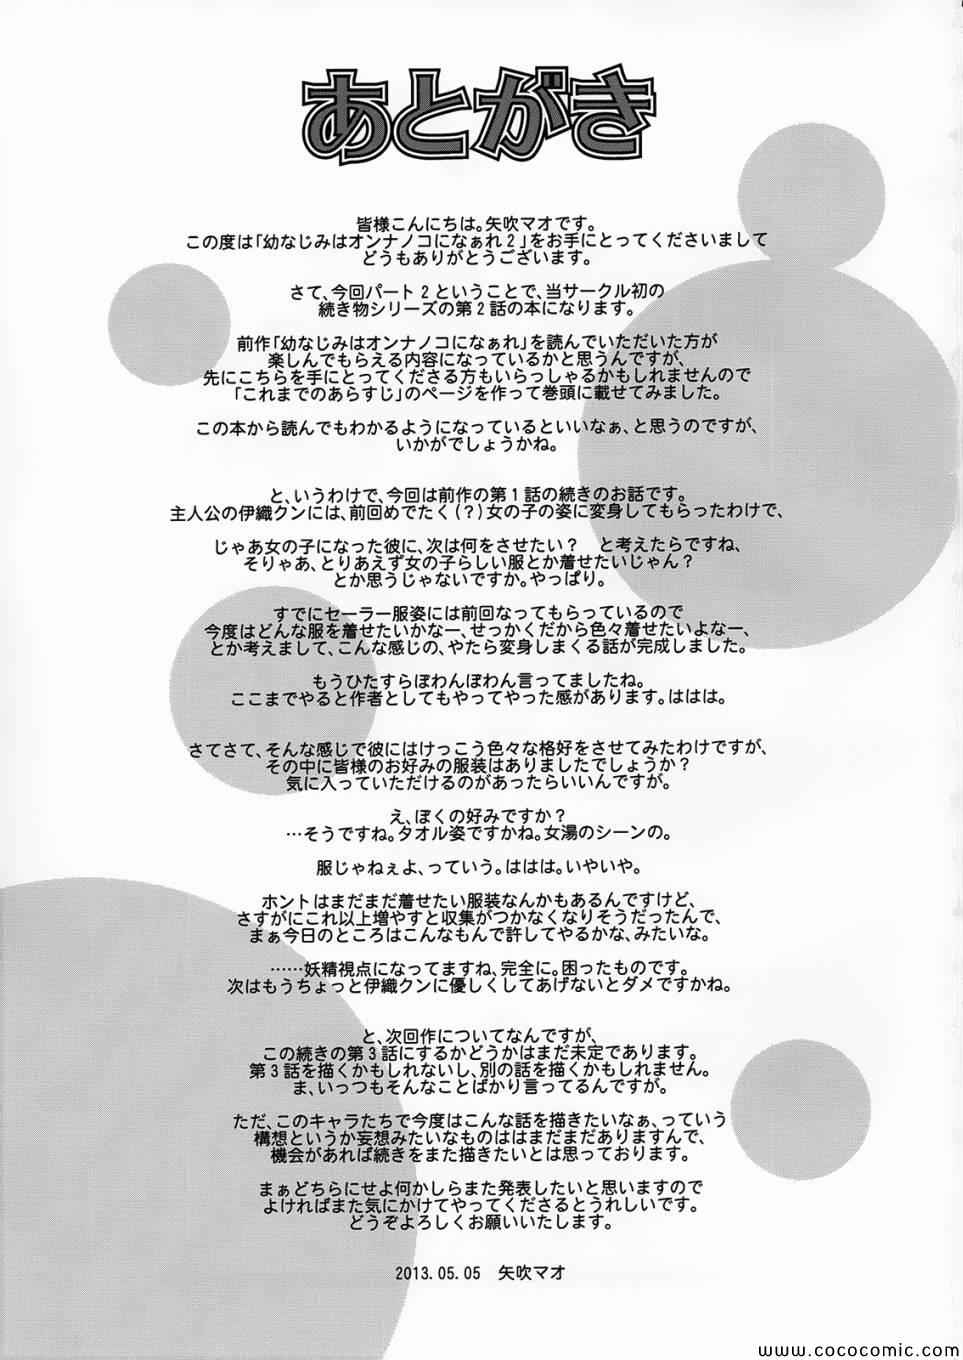 あとがき
皆様こんにちは。矢吹マオです。
この度は「幼なじみはオンナノコになぁれ2」をお手にとってくださいまして
どうもありがとうございます。
さて、今回パート2ということで、当サークル初の
続き物シリーズの第2話の本になります。
前作「幼なじみはオンナノコになぁれ」を読んでいただいた方が
楽しんでもらえる内容になっているかと思うんですが、
先にこちらを手にとってくださる方もいらっしゃるかもしれませんので
「これまでのあらすじ」のページを作って巻頭に載せてみました。
この本から読んでもわかるようになっているといいなぁ、と思うのですが、
いかがでしょうかね。
と、いうわけで、今回は前作の第1話の続きのお話です。
主人公の伊織クンには、前回めでたく(?)女の子の姿に変身してもらったわけで、
じゃあ女の子になった彼に、次は何をさせたい? と考えたらですね、
そりゃあ、とりあえず女の子らしい服とか着せたいじゃん?
とか思うじゃないですか。やっぱり。
すでにセーラー服姿には前回なってもらっているので
今度はどんな服を着せたいかなー、せっかくだから色々着せたいよなー、
とか考えまして、こんな感じの、やたら変身しまくる話が完成しました。
もうひたすらぽわんぽわん言ってましたね。
ここまでやると作者としてもやってやった感があります。ははは。
さてさて、そんな感じで彼にはけっこう色々な格好をさせてみたわけですが、
その中に皆様のお好みの服装はありましたでしょうか?
気に入っていただけるのがあったらいいんですが。
え、ぼくの好みですか?
…そうですね。タオル姿ですかね。女湯のシーンの。
服じゃねぇよ、っていう。ははは。いやいや。
ホントはまだまだ着せたい服装なんかもあるんですけど、
さすがにこれ以上増やすと収集がつかなくなりそうだったんで、
まぁ今日のところはこんなもんで許してやるかな、みたいな。
……妖精視点になってますね、完全に。困ったものです。
次はもうちょっと伊織クンに優しくしてあげないとダメですかね。
と、次回作についてなんですが、
この続きの第3話にするかどうかはまだ未定であります。
第3話を描くかもしれないし、別の話を描くかもしれません。
ま、いっつもそんなことばかり言ってるんですが。
ただ、このキャラたちで今度はこんな話を描きたいなぁ、っていう
構想というか妄想みたいなものははまだまだありますんで、
機会があれば続きをまた描きたいとは思っております。
まぁどちらにせよ何かしらまた発表したいと思いますので
よければまた気にかけてやってくださるとうれしいです。
どうぞよろしくお願いいたします。
2013.05.05 矢吹マオ
www.cococomic.com